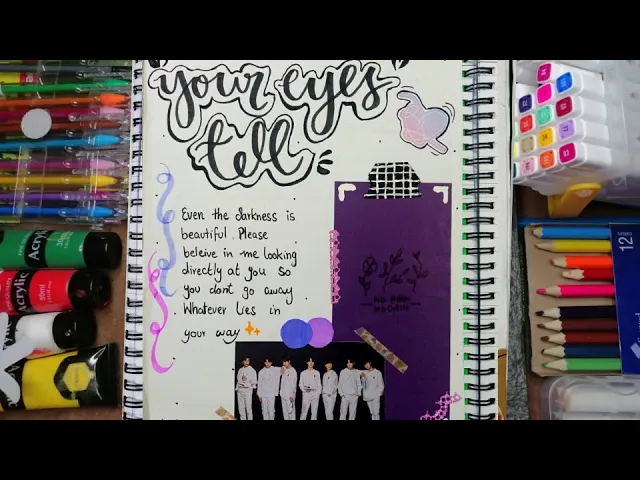 "your eyes
tell"
Even the darkness is
beautiful. Please
beleive in me looking
directly at you so
you dont go away
Whatever lies in
your way
Acrylic
Acrylic
12